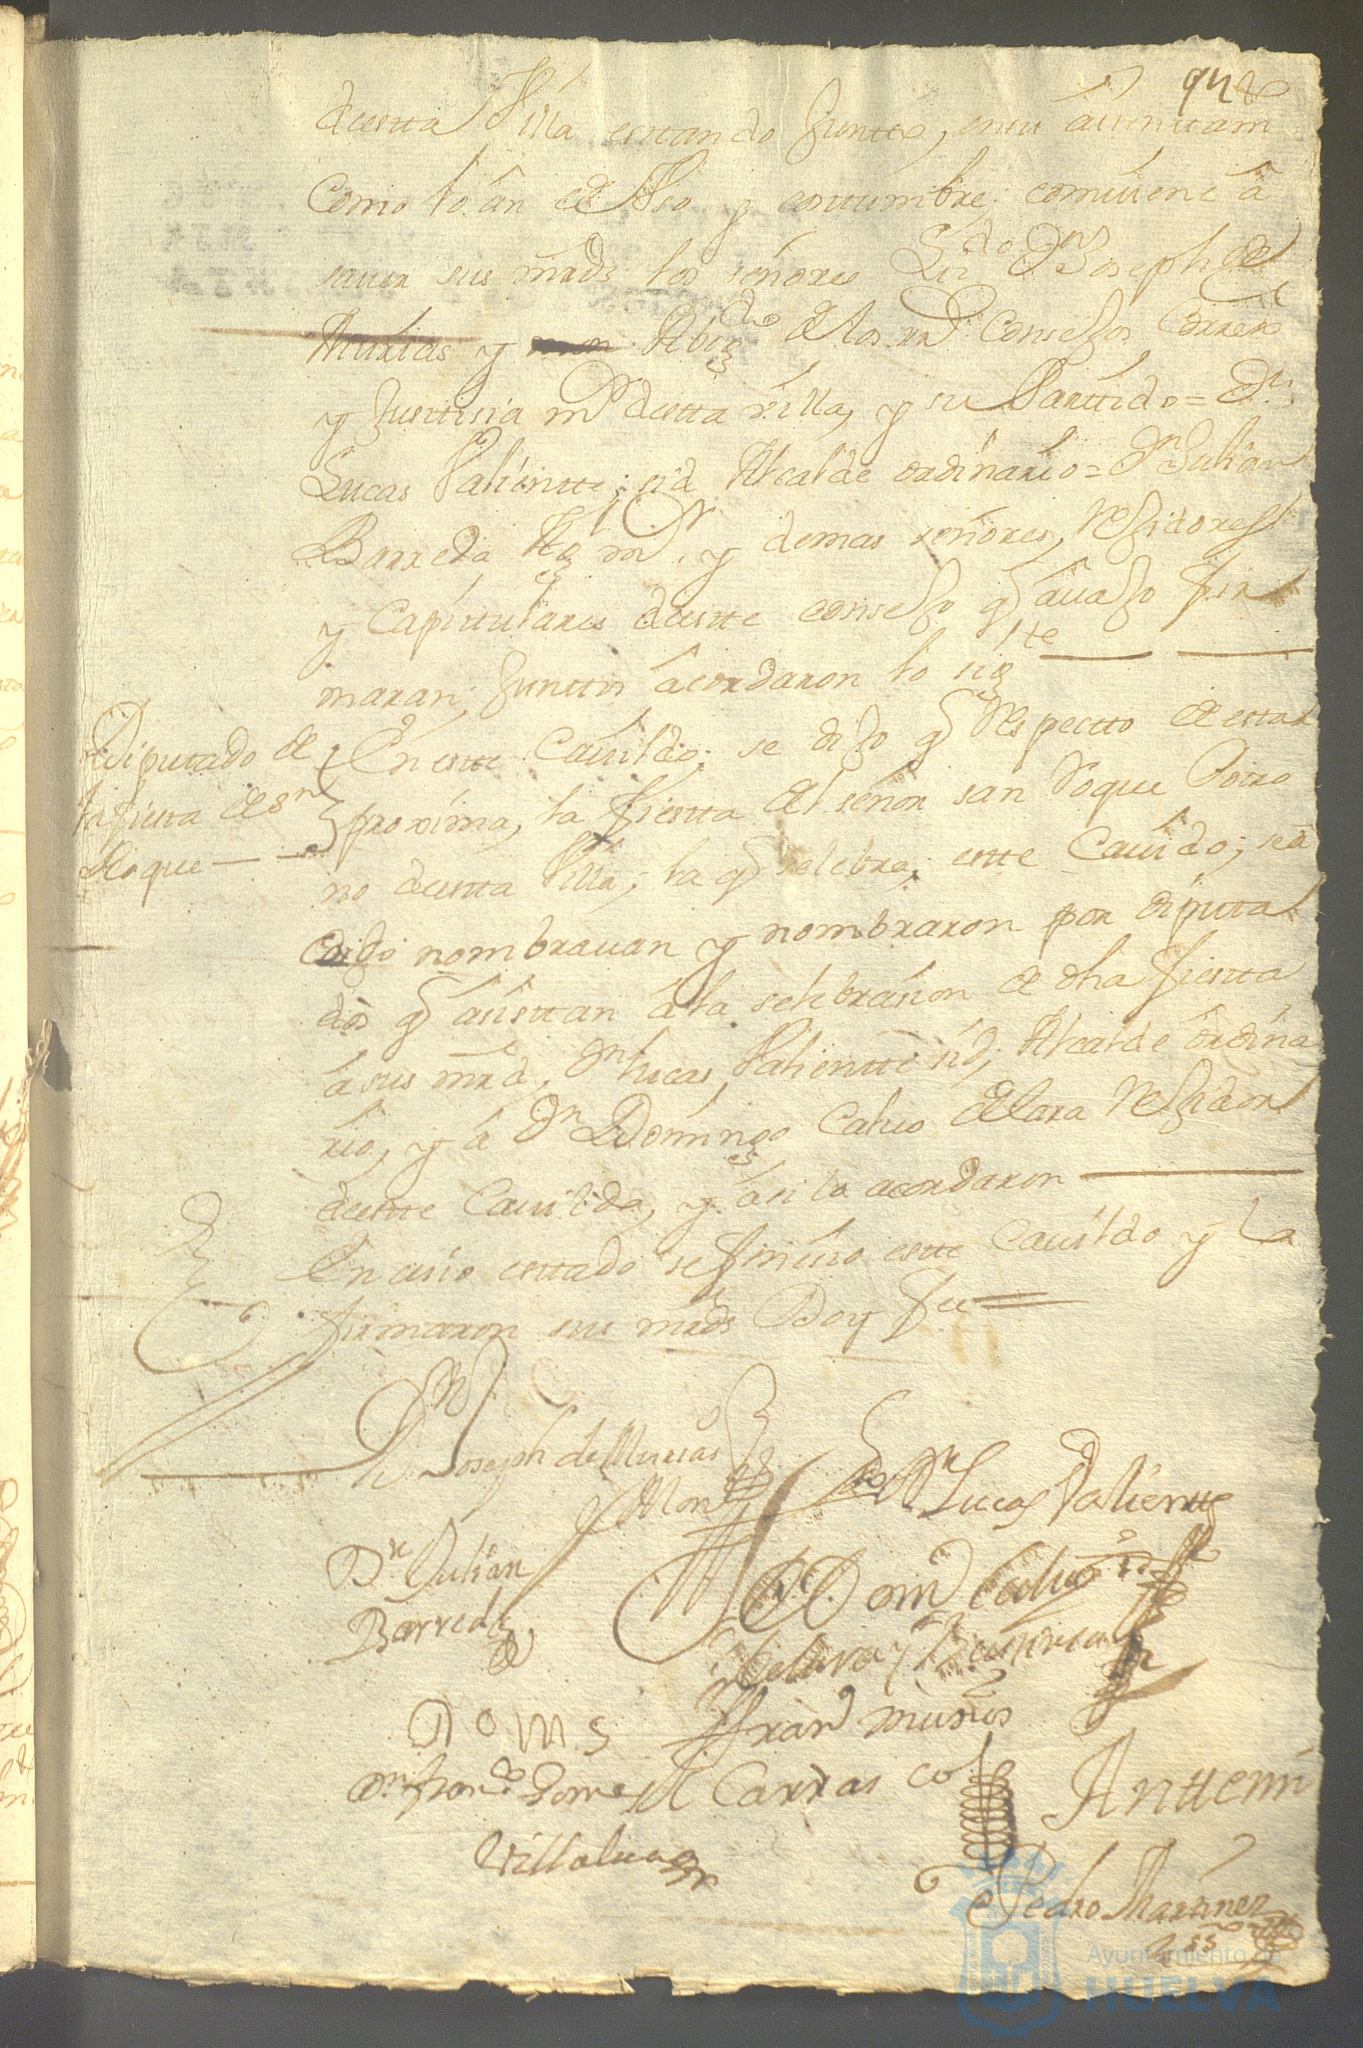 94
deesta Villa estando Junttos, en su aiuntam
Como lo an de Uso y costumbre, comviene â
saver sus mrds los señores Lizdo Dn Joseph de
Murias y Abogdo de los Rs Consejos, Correxr
y Justisia mr desta villa, y su Parttido = Dn
Lucas Valientte, Alcalde ordinario = Dn Julian
Barreda Algl mr y demas señores, Rexidores
y Capitulares deeste consejo q âvajo fir
maran; Junttos âcordaron lo sigte
Diputado de
la fiesta de Sn
Roque
En este Cavildo; se dijo q Respecto de estar
proxima, la fiestta del señor san Roque Patro
no deesta Villa, la q selebra, este Cavildo; se â
nombravan y nombraron por diputa
dos q asistan â la selebrasion de dha fiestta
â sus mrd, Dn Lucas Valientte, Alcalde ôrdina
rio, y â Dn Domingo Calvo de Lara Rexidor
deeste Cavildo, y âsi lo acordaron
En cuio esttado se finaiso este Cavildo y la
firmaron sus mrds Doy fee
Dn Joseph de Murias
y Mon
Dn Lucas Valientte
Dn Julian
Barreda
Dn Domo Calvo
de Lara y
Dn Frando Gomes
Villalva
Fran Muños
Carrasco
Antte mi
Pedro Martines
Essno
Ayuntamiento de
HUELVA